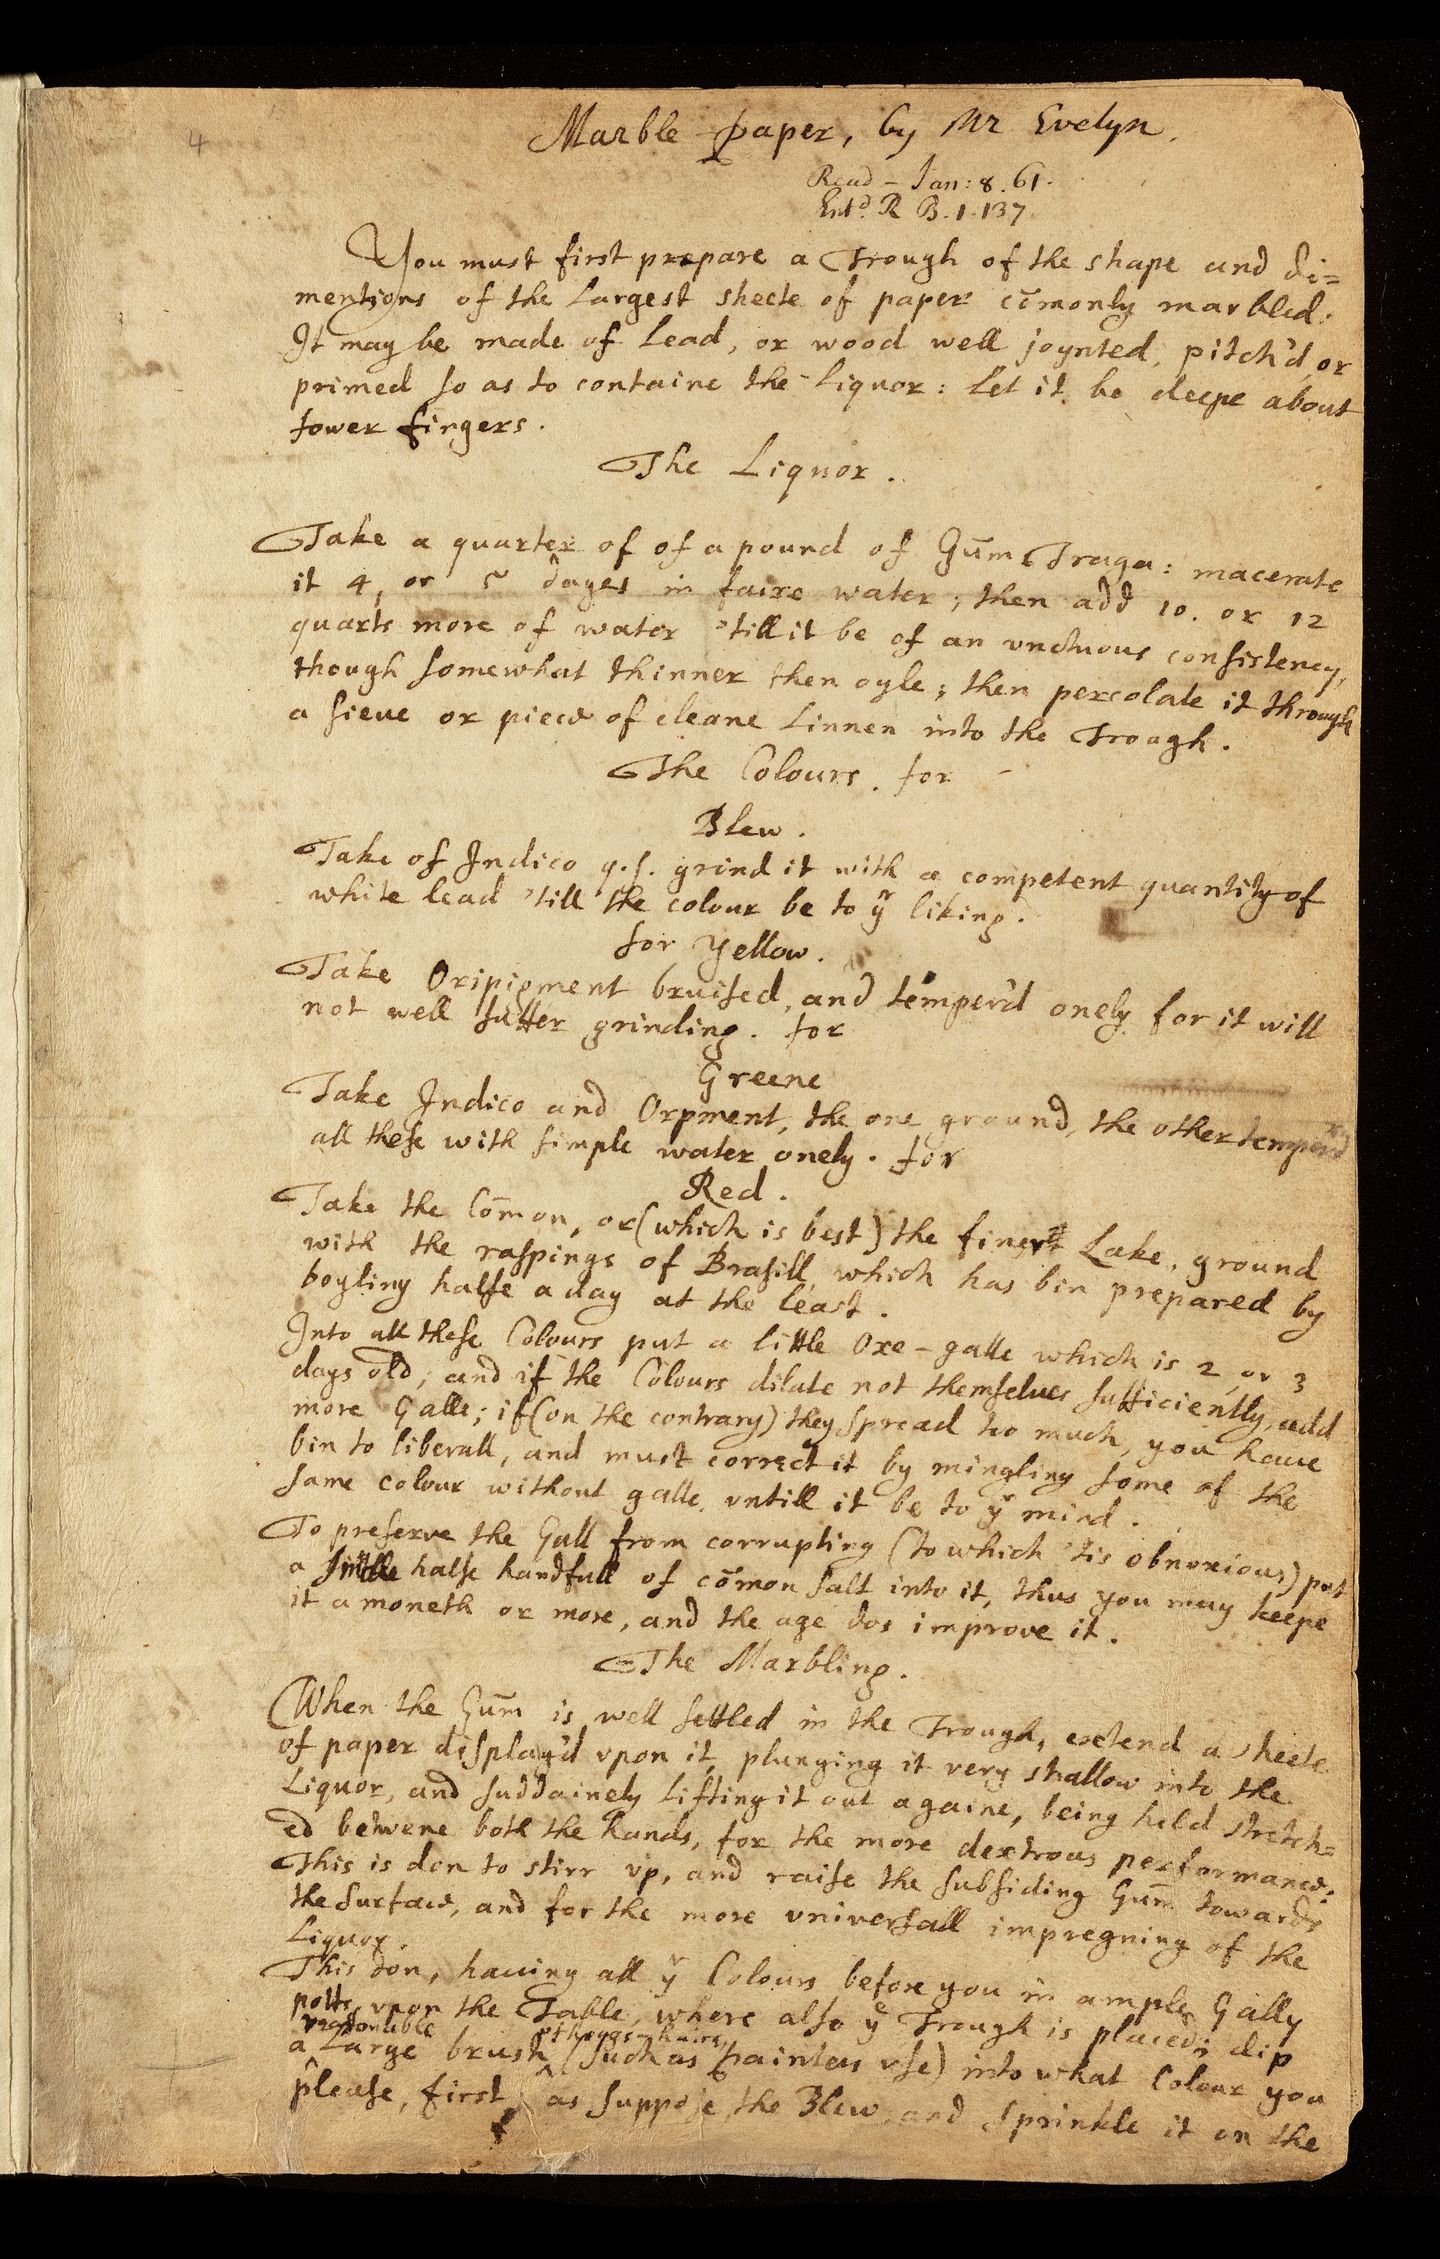 4
Marble paper, by Mr Evelyn.
Read - Jan: 8. 61.
Entd. R B. 1. 137
You must first prepare a Trough of the shape and di=
mentions of the largest sheete of paper cōmonly marbled:
It may be made of Lead, or wood well joynted, pitch'd, or
primed so as to containe the Liquor: let it be deepe about
fower fingers.
The Liquor.
Take a quarter of of a pound of Gum̄ Traga: macerate
it 4, or 5 dayes in faire water; then add 10. or 12
quarts more of water 'till it be of an vnctuous consistency,
though somewhat thinner then oyle; then percolate it through
a sieue or piece of cleane Linnen into the Trough.
The Colours. for
Blew.
Take of Indico q.s. grind it with a competent quantity of
white lead 'till the colour be to yr liking.
for Yellow.
Take Oripigment bruised, and temper'd onely for it will
not well suffer grinding. for
Greene
Take Indico and Orpment, the one ground, the other temper'd
all these with simple water onely. for
Red.
Take the Cōmon, or (which is best) the finest Lake, ground
with the raspings of Brasill, which has bin prepared by
boyling halfe a day at the least.
Into all these Colours put a little Oxe-galle which is 2, or 3
days old, and if the Colours dilate not themselues sufficiently, add
more Galle; if (on the contrary) they spread too much, you haue
bin to liberall, and must correct it by mingling some of the
same colour without galle, vntill it be to yr mind.
To preserve the Gall from corrupting (to which 'tis obnoxious) put
a little halfe handfull of cōmon salt into it, thus you may keepe
it a moneth or more, and the age dos improve it.
The Marbling.
When the Gum̄ is well settled in the Trough, extend a sheete
of paper display'd vpon it, plunging it very shallow into the
Liquor, and suddainely lifting it out againe, being held stretch=
ed betwene both the hands, for the more dextrous performance:
This is don to stirr vp, and raise the subsiding Gum̄ towards
the surface, and for the more vniversall impregning of the
Liquor.
This don, hauing all yr Colours before you in ample Gally
potts, vpon the Table, where also ye Trough is placed; dip
reasonable of hoggs-haire,
a Large brush (such as painters vse) into what Colour you
please, first, as suppose the Blew, and sprinkle it on the